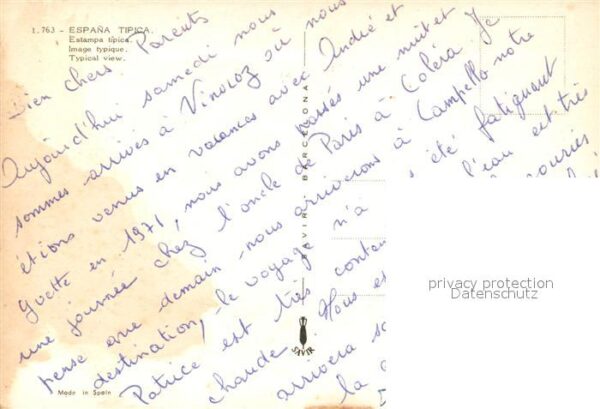 1.763 - ESPAÑA TIPICA.
Estampa típica.
Image typique.
Typical view.
Bien chers Parents
Aujourd'hui samedi nous
sommes arrivés à Vinaroz où nous
étions venus en vacances avec André et
guette en 1971, nous avons passés une nuit et
une journée chez l'oncle de Paris à Coléra Je
pense que demain nous arriverons à Campello notre
destination, le voyage n'a été fatiguant
Patrice est très conten l'eau est très
chaude. Nous es
arrivera
la
SAVIR - BARCELONA
SAVIR
Made in Spain
privacy protection
Datenschutz